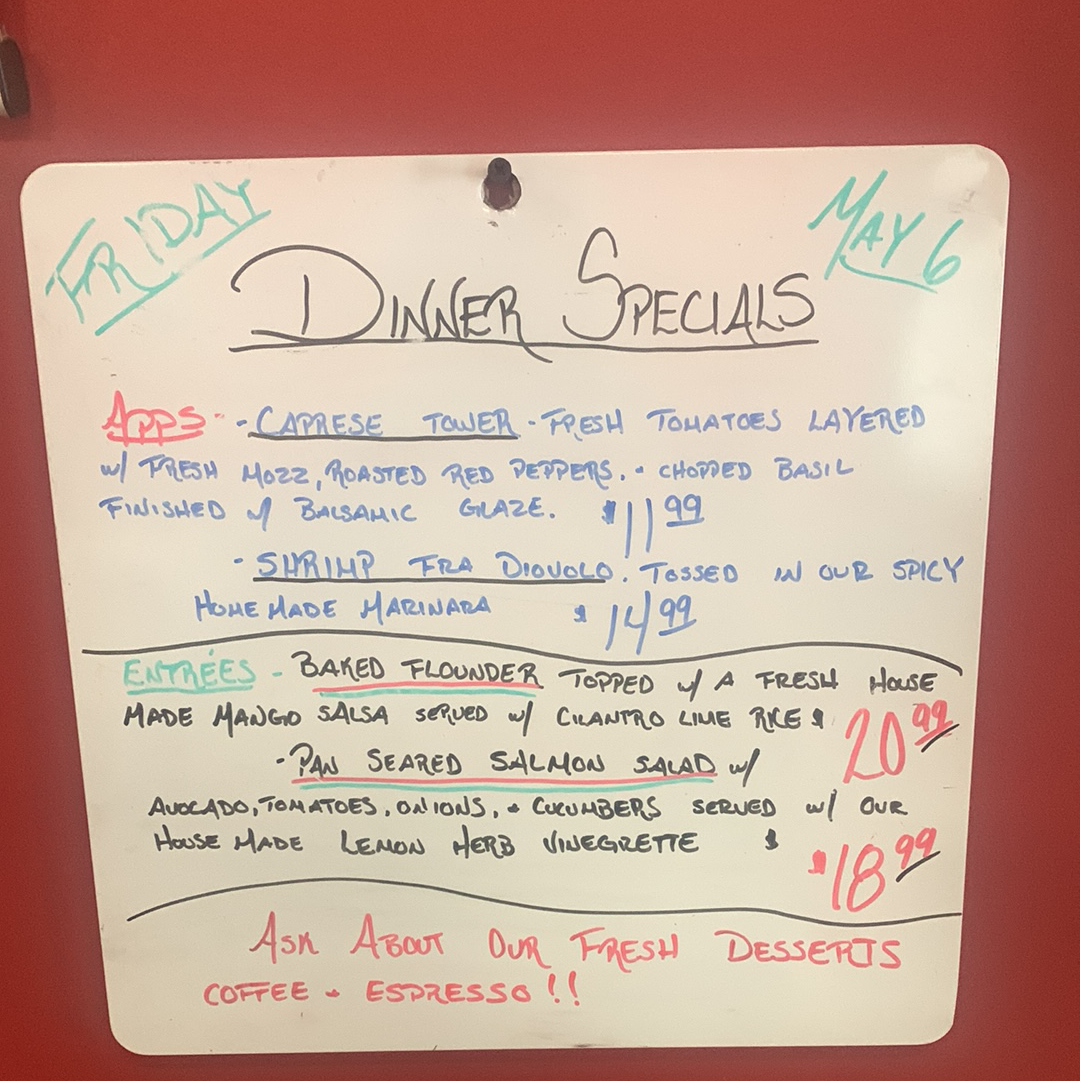 FRIDAY
MAY 6
DINNER SPECIALS
APPS - - CAPRESE TOWER - FRESH TOMATOES LAYERED
w/ FRESH MOZZ, ROASTED RED PEPPERS, + CHOPPED BASIL
FINISHED w/ BALSAMIC GLAZE. $11 99
- SHRIMP FRA DIOVOLO. TOSSED IN OUR SPICY
HOMEMADE MARINARA $14 99
ENTRÉES - BAKED FLOUNDER TOPPED w/ A FRESH HOUSE
MADE MANGO SALSA SERVED w/ CILANTRO LIME RICE $ 20 99
- PAN SEARED SALMON SALAD w/
AVOCADO, TOMATOES, ONIONS, + CUCUMBERS SERVED w/ OUR
HOUSE MADE LEMON HERB VINEGRETTE $ $18 99
ASK ABOUT OUR FRESH DESSERTS
COFFEE + ESPRESSO!!